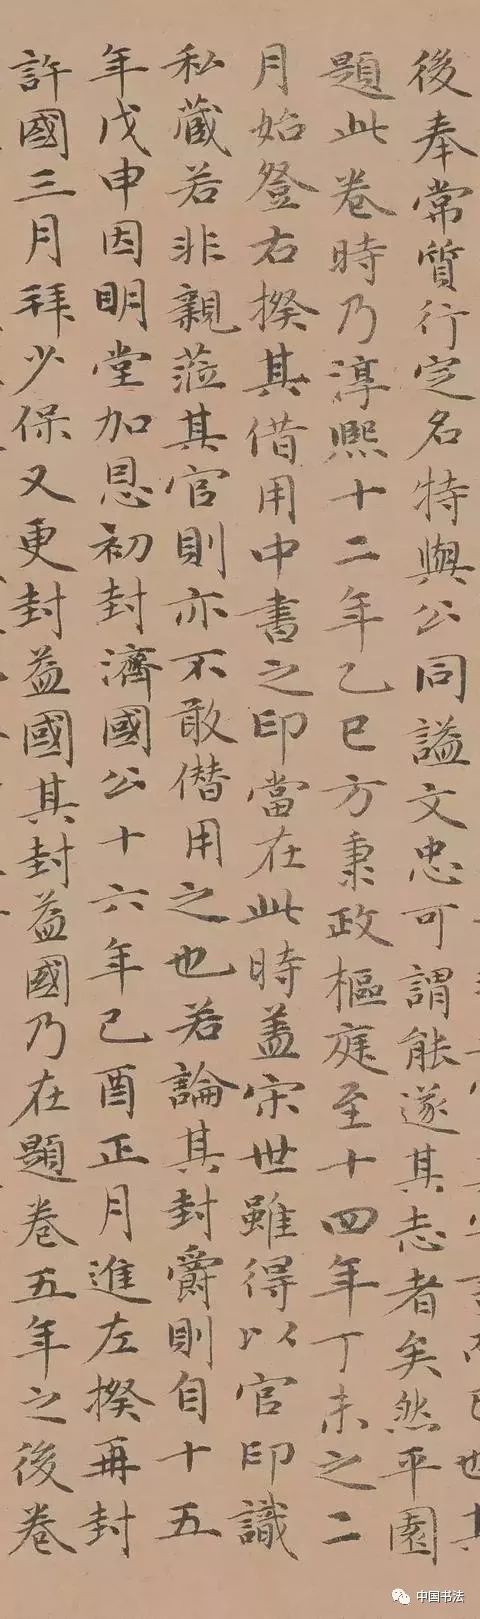 後奉常質行定名特與公同謚文忠可謂能遂其志者矣然平園
題此卷時乃淳熙十二年乙巳方秉政樞庭至十四年丁未之二
月始登右揆其借用中書之印當在此時蓋宋世雖得以官印識
私藏若非親蒞其官則亦不敢僭用之也若論其封爵則自十五
年戊申因明堂加恩初封濟國公十六年己酉正月進左揆再封
許國三月拜少保又更封益國其封益國乃在題卷五年之後卷
中国书法